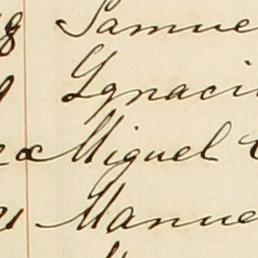 8 Samue
Ignaci
Miguel
21 Manue